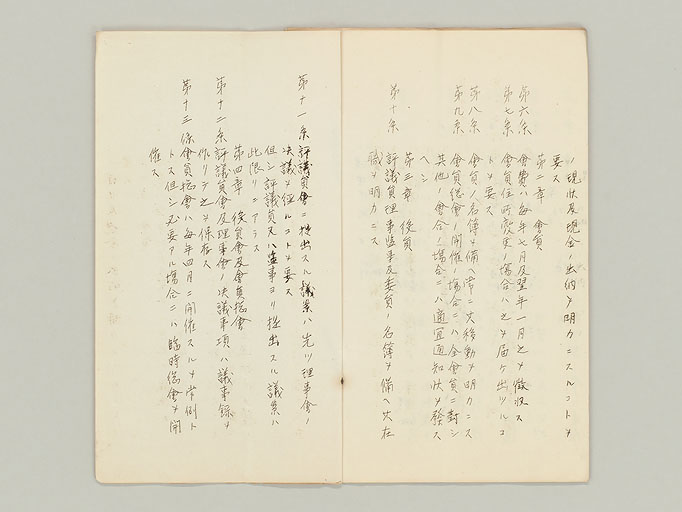 ノ現状及現金ノ出納ヲ明カニスルコトヲ
要ス
第二章 會員
第六条 會費ハ毎年七月及翌年一月之ヲ徴収ス
第七条 會員住所変更ノ場合ハ之ヲ届ケ出ツルコ
トヲ要ス
第八条 會員ノ名簿ヲ備ヘ常ニ其移動ヲ明カニス
第九条 會員総會ノ開催ノ場合ニハ全會員ニ對シ
其他ノ會合ノ場合ニハ適宜通知状ヲ發ス
ヘシ
第三章 役員
第十条 評議員理事監事及委員ノ名簿ヲ備ヘ其在
職ヲ明カニス
第十一条 評議員會ニ提出スル議案ハ先ツ理事會ノ
決議ヲ経ルコトヲ要ス
但シ評議員又ハ監事ヨリ提出スル議案ハ
此限リニアラス
第四章 役員會及會員総會
第十二条 評議員會及理事會ノ決議事項ハ議事録ヲ
作リテ之ヲ保存ス
第十三條 會員総會ハ毎年四月ニ開催スルヲ常例ト
トス但シ必要アル場合ニハ臨時総會ヲ開
催ス